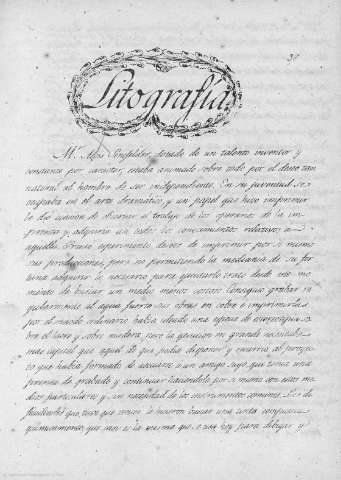 Litografía
Mr. Aloys Senefelder, dotado de un talento inventor y
constante por caracter, estaba animado sobre todo por el deseo tan
natural al hombre de ser independiente. En su juventud se o
cupaba en el arte dramatico, y un papel que hizo imprimir
le dió ocasion de observar el trabajo de los operarios de la im
prenta y adquirir en estos los conocimientos relativos a
aquella. Pronto esperimentó deseos de imprimir por si mismo
sus producciones, pero no permitiendo la mediania de su for
tuna adquirir lo necesario para ejecutarlo trató desde ese mo
mento de buscar un medio menos costoso. Consiguió grabar re
gularmente al agua fuerte sus obras en cobre é imprimirlas
por el modo ordinario habia ideado una especie de estereotipia so
bre el lacre y sobre madera, pero la ejecucion en grande necesitaba
mas caudal que aquel de que podia disponer y recurrió al proyec
to que habia formado de asociarse a un amigo suyo que tenia una
prensa de grabado y continuar haciendolo por si mismo con esos me
dios particulares y sin necesidad de los instrumentos comunes. Las di
ficultades que tuvo que vencer le hicieron buscar una tinta compuesta
quimicamente que casi es la misma que se usa hoy para dibujar y